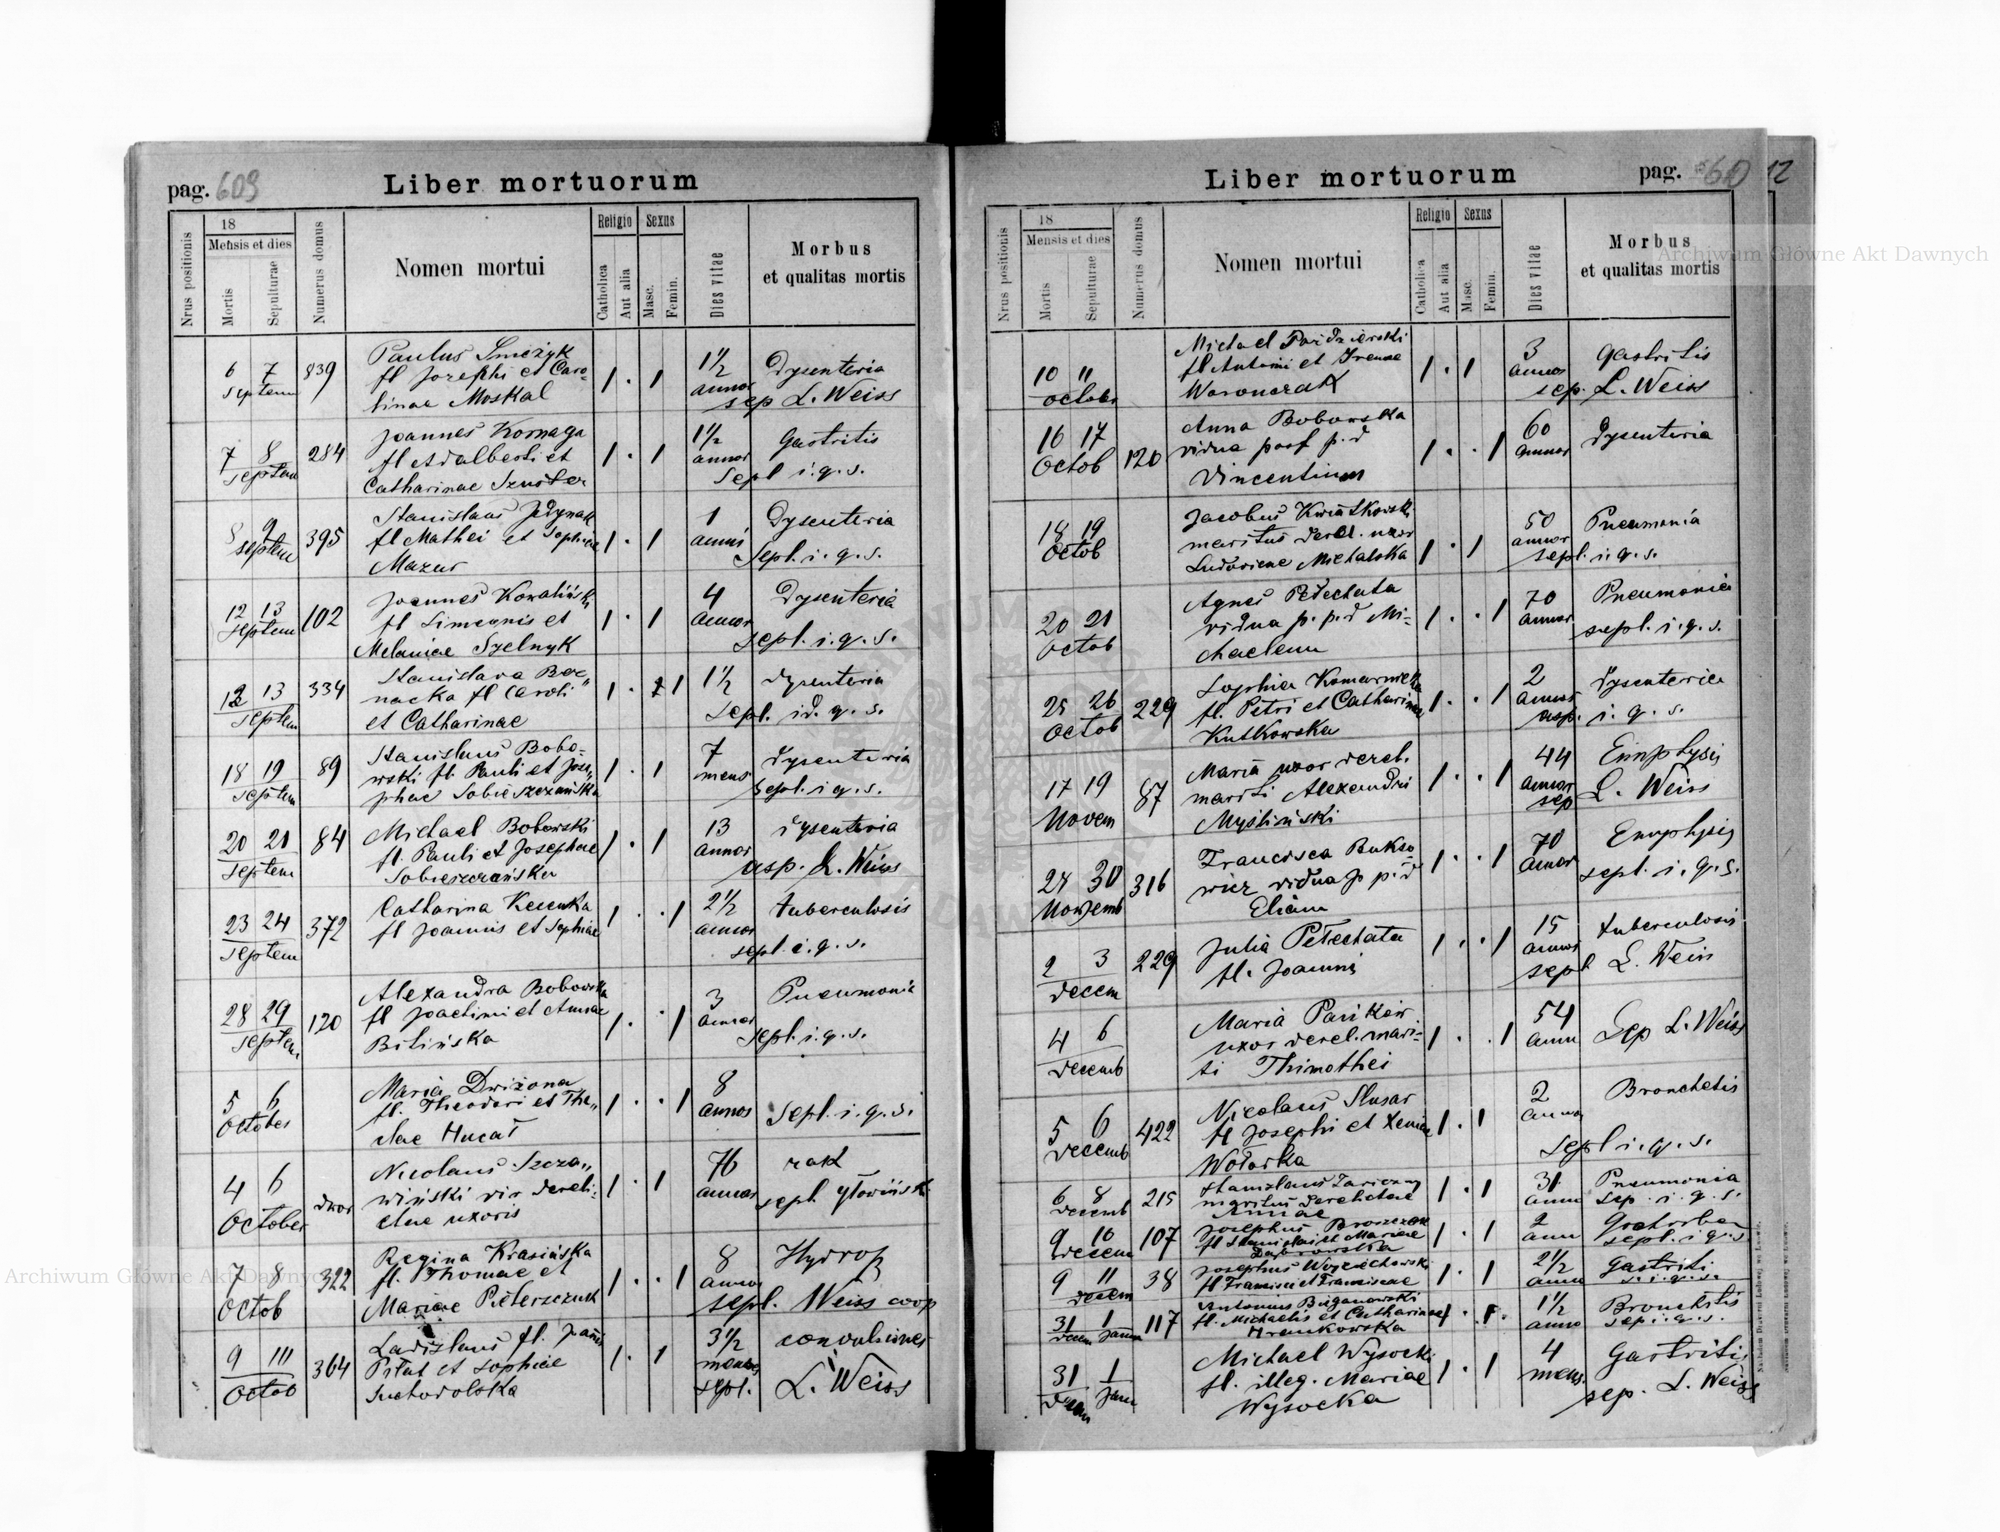 pag. 609
Liber mortuorum
Nrus positionis
18
Mensis et dies
Mortis
Sepulturae
Numerus domus
Nomen mortui
Religio
Catholica
Aut alia
Sexus
Masc.
Femin.
Dies vitae
Morbus
et qualitas mortis
6 7 Septem 839
Paulus
fl Josephi et Caro-
linae Moskal
1 . 1
1½ annor
Dysenteria
sep L. Weiss
7 8 Septem 284
Joannes Kornaga
fl Adalberti et
Catharinae Szuster
1 . 1
1½ annor
Gastritis
Sepl i. q. s.
8 9 septem 395
Stanislaus Jedynak
fl Mathei et Sophiae
Mazur
1 . 1
1 anni
Dysenteria
Sepl. i. q. s.
12 13 Septem 102
Joannes Kowaliński
fl Simeonis et
Melaniae Szelnyk
1 . 1
4 annor
Dysenteria
sepl. i. q. s.
12 13 Septem 334
Stanislava
nacka fl Caroli
et Catharinae
1 . 1
1½
dysenteria
Sepl. id. q. s.
18 19 Septem 89
Stanislaus Bobo-
wski fl. Pauli et Jose-
phae Sobieszczańska
1 . 1
7 mens
dysenteria
sepl. i q. s.
20 21 Septem 84
Michael Bobowski
fl. Pauli et Josephae
Sobieszczańska
1 . 1
13 annor
dysenteria
asp. L. Weiss
23 24 Septem 372
Catharina
fl Joannis et Sophiae
1 . . 1
2½ annor
tuberculosis
sepl. i. q. s.
28 29 Septem 120
Alexandra Bobowska
fl Joachimi et Annae
Bilińska
1 . . 1
3 annor
Pneumonia
sepl. i. q. s.
5 6 October
Maria Dwizona
fl. Theodori et The-
clae Hucał
1 . . 1
8 annos
Sepl. i. q. s.
4 6 October dwor
Nicolaus Szcza-
wiński vir dereli-
ctae uxoris
1 . 1
76 annor
rak
sepl.
7 8 Octob 322
Regina Krasińska
fl. Thomae et
Mariae
1 . . 1
8 annor
Hydrop
sepl. Weiss coop
9 10 Octob 364
Ladislaus fl. Joannis
Piłat et Sophiae
Suchodolska
1 . 1
3½ menses
convulsiones
sepl. L. Weiss
Liber mortuorum
pag. 610
12
Nrus positionis
18
Mensis et dies
Mortis
Sepulturae
Numerus domus
Nomen mortui
Religio
Catholica
Aut alia
Sexus
Masc.
Femin.
Dies vitae
Morbus
et qualitas mortis
10 11 October
Michael
fl Antonii et Irenae
Woronczak
1 . 1
3 annor
Gastritis
sep. L. Weiss
16 17 Octob 120
Anna Bobowska
vidua post p. d
Vincentium
1 . . 1
60 annor
dysenteria
18 19 Octob
Jacobus Kwiatkowski
maritus derel. uxor
Ludovicae Michalska
1 . 1
50 annor
Pneumonia
sepl. i. q. s.
20 21 Octob
Agnes Pełechata
vidua p. p. d Mi-
chaelem
1 . . 1
70 annor
Pneumonia
sepl. i. q. s.
25 26 Octob 229
Sophia Komarnicka
fl. Petri et Catharinae
Kutkowska
1 . . 1
2 annor
dysenteria
asp. i. q. s.
17 19 Novem 87
Maria uxor derel.
mariti Alexandri
Myśliński
1 . . 1
44 annor
Emphysis
sep L. Weiss
30 Novemb 316
Francisca
vidua p p. d
Eliam
1 . . 1
70 annor
Emphysis
sepl. i. q. s.
2 3 decem 229
Julia Pełechata
fl. Joannis
1 . . 1
15 annor
tuberculosis
sepl L. Weiss
4 6 decemb
Maria Pańków
uxor derel. mari-
ti Thimothei
1 . . 1
54 annor
Sep L. Weiss
5 6 decemb 422
Nicolaus Slusar
fl Josephi et Xeniae
Wołoska
1 . 1
2 annor
Bronchitis
sepl i. q. s.
6 8 decemb 215
Stanislaus
maritus derelictae
Annae
1 . 1
31 annor
Pneumonia
sep. i. q. s.
9 10 decem 107
Josephus Broszczak
fl Stanislai et Mariae
Dąbrowska
1 . 1
2 ann
sepl. i q s
9 11 decem 38
Josephus Wojciechowski
fl Francisci et Franciscae
1 . 1
2½ annor
Gastriti
s. i. q. s.
31 1 decem Janua 117
Antonius Biganowski
fl. Michaelis et Catharinae
Hrenkowska
1 . 1
1½ anno
Bronchitis
sep i. q. s.
31 1 decem Janu
Michael Wysocki
fl. illeg. Mariae
Wysocka
1 . 1
4 mens.
Gastritis
sep. L. Weiss
Archiwum Główne Akt Dawnych
Archiwum Główne Akt Dawnych